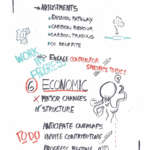 → ADJUSTMENTS
• EMISSION PATHWAY
• CARBON BEHAVIOUR
• CARBON TRADING
• CO BENEFITS
WORK IN PROGRESS
• ENGAGE CONTRIBUTOR
SPECIFIC TOPICS
6 ECONOMIC
× MAJOR CHANGES
IN STRUCTURE
TO DO
ANTICIPATE
INVITE CONTRIBUTORS
PROGRESS